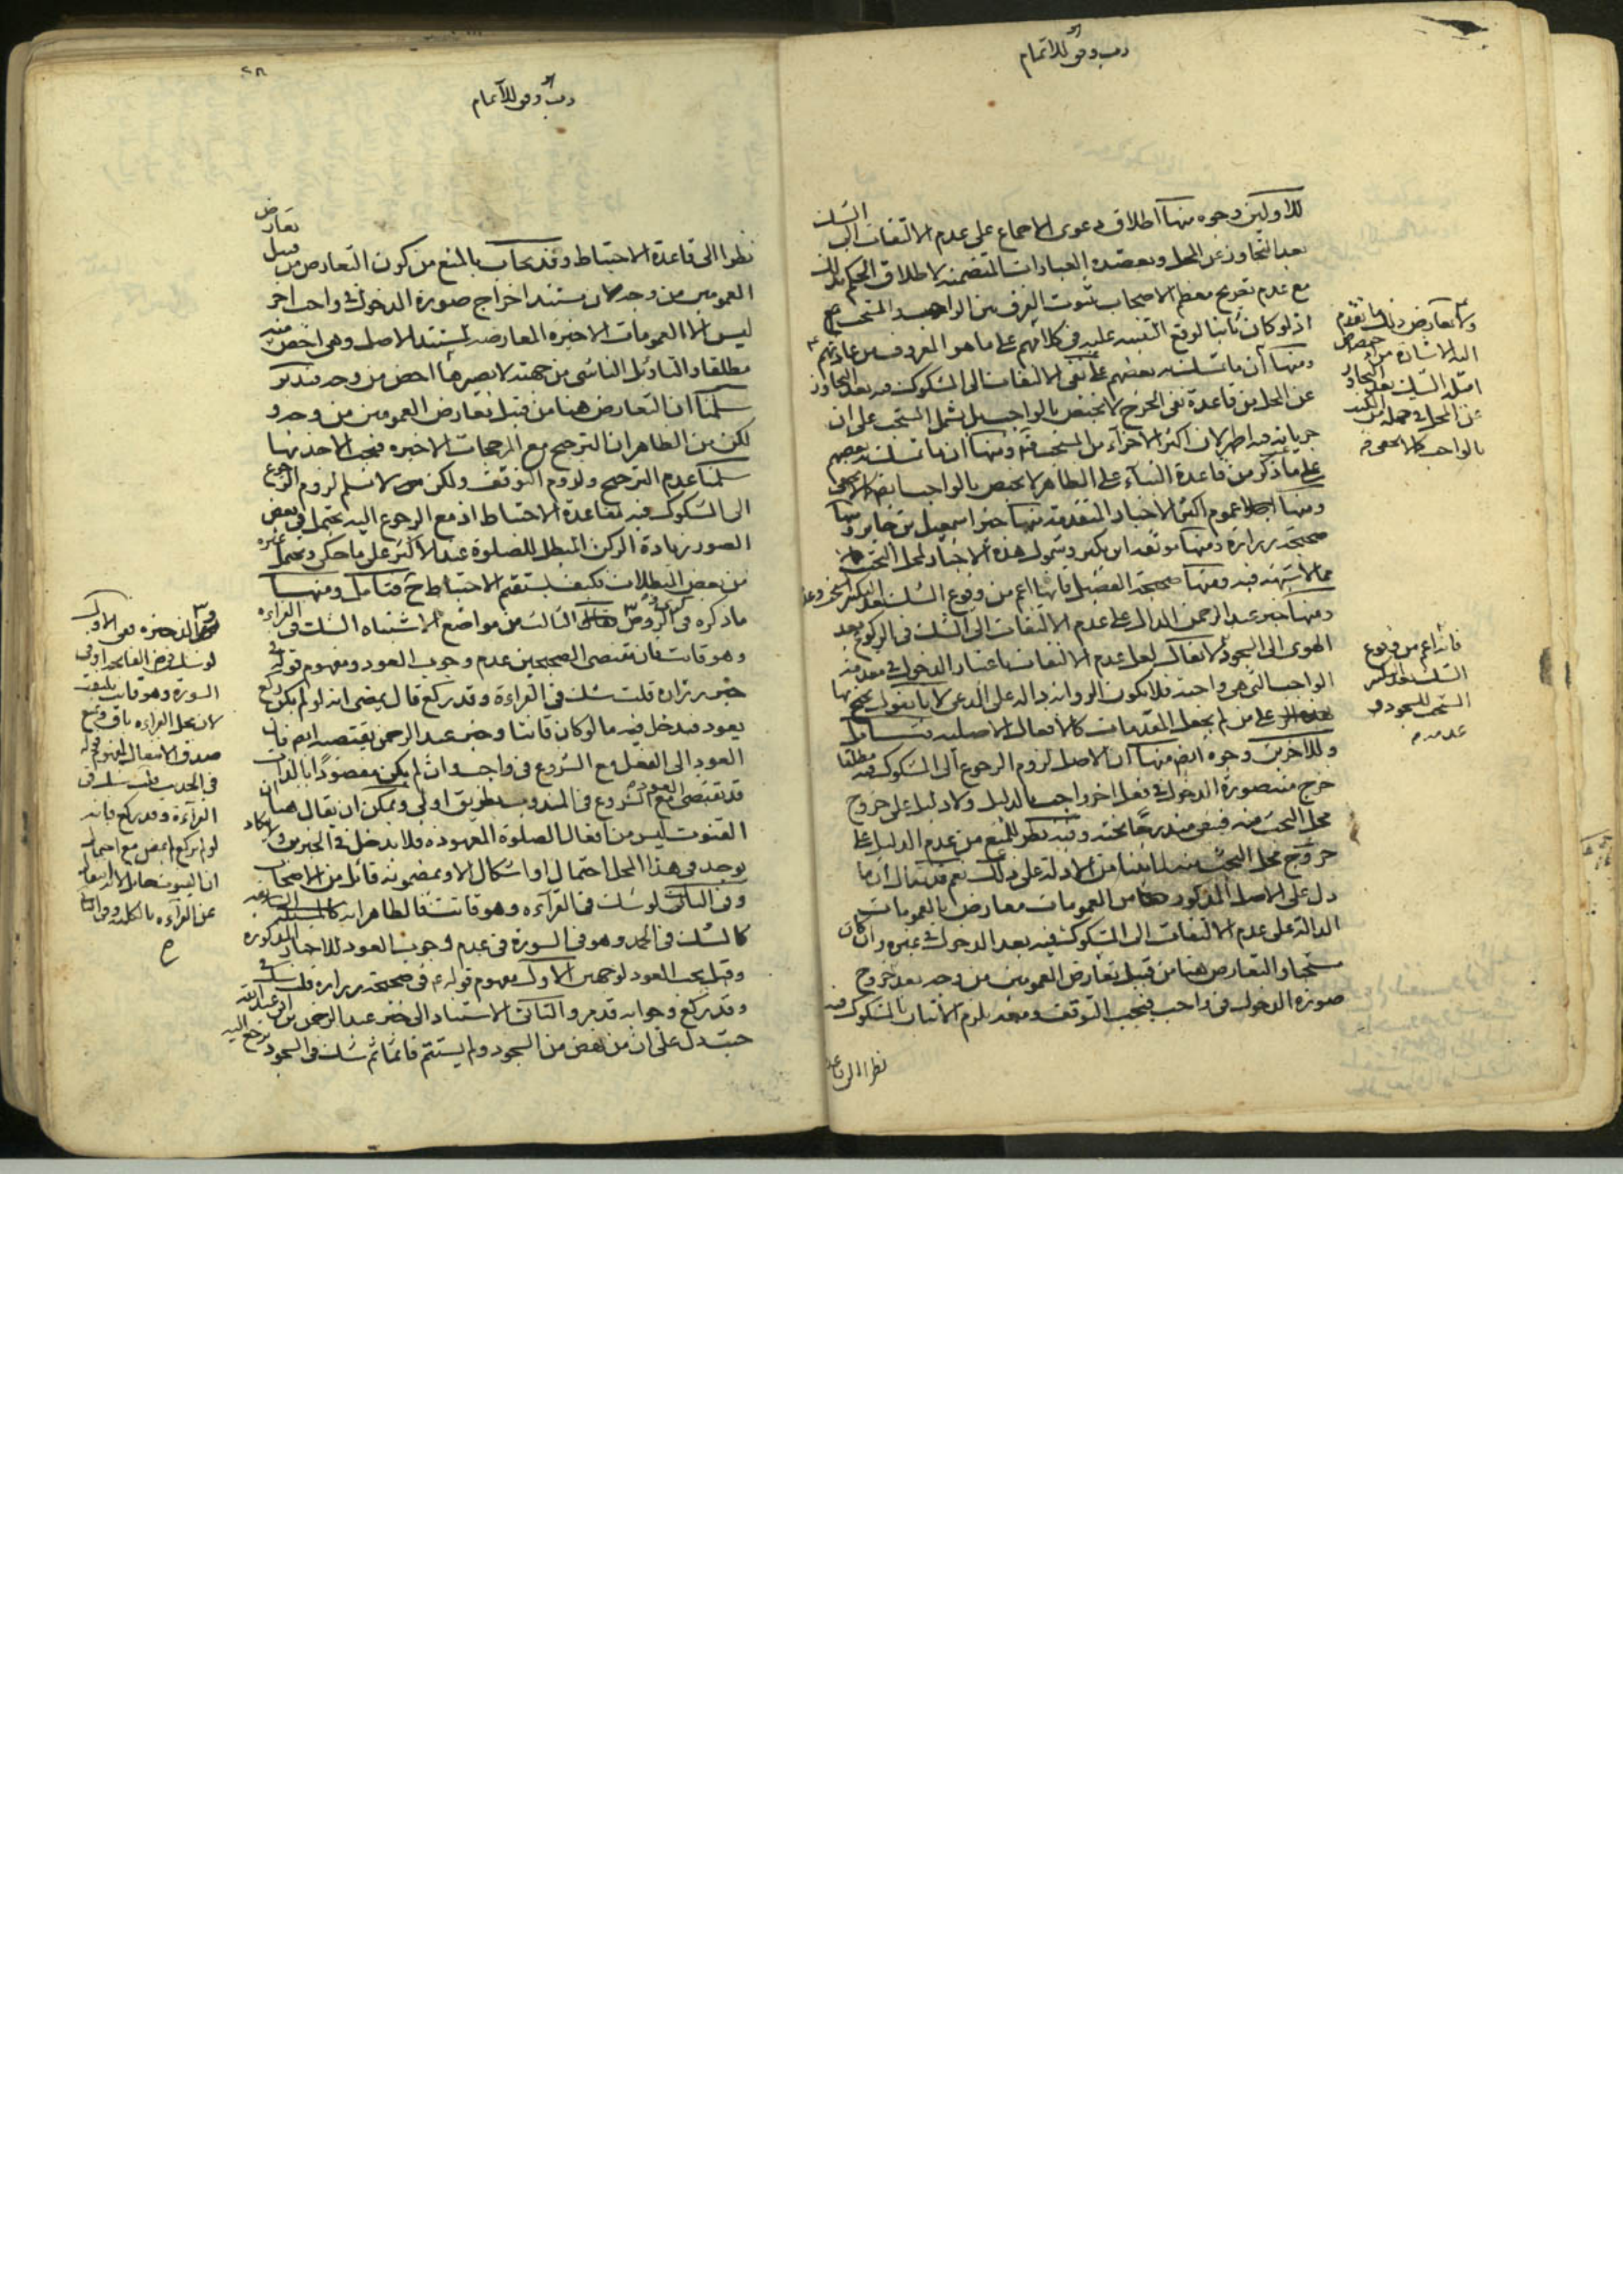 رب وفق للاتمام
للاولين وجوه منها اطلاق دعوى الاجماع على عدم الالتفات الى الشك
بعد التجاوز عن المحل ويعضده العبادات المتضمنة لاطلاق الحكم بذلك
مع عدم تصريح معظم الاصحاب بثبوت الفرق بين الواجب والمستحب
اذ لو كان ثابتا لوقع التنبيه عليه في كلامهم على ما هو المعروف من عادتهم
ومنها ان ما تمسك به بعضهم على نفى الالتفات الى المشكوك فيه بعد التجاوز
عن المحل من قاعدة نفى الحرج لا يختص بالواجب بل يشمل المستحب على ان
جريانه فيه اظهر لان اكثر الاجزاء من المستحبات ومنها ان ما تمسك به بعضهم
على ما ذكر من قاعدة البناء على الظاهر لا يختص بالواجبات كما لا يخفى
ومنها عموم اكثر الاخبار المتقدمة منها خبر اسمعيل بن جابر ومنها
صحيحة زرارة ومنها موثقة ابن بكير وشمول هذه الاخبار لمحل البحث
مما لا شبهة فيه ومنها صحيحة الفضيل فانها اعم من وقوع الشك بعد
ومنها خبر عبد الرحمن الدال على عدم الالتفات الى الشك في الركوع بعد
الهوى الى السجود لا يقال لعل عدم الالتفات باعتبار الدخول في مقدمة
الواجب التي هي واجبة فلا يكون الرواية دالة على المدعى لانا نقول
على من لم يجعل المقدمات كالافعال الاصلية فتأمل
وللاخرين وجوه ايضا منها ان الاصل لزوم الرجوع الى المشكوك فيه مطلقا
خرج منه صورة الدخول في فعل اخر واجب بالدليل ولا دليل على خروج
محل البحث منه فيبقى مندرجا تحته وفيه نظر للمنع من عدم الدليل على
خروج محل البحث منه لما بينا من الادلة على ذلك نعم قد يقال ان ما
دل على الاصل المذكور من العمومات معارض بالعمومات
الدالة على عدم الالتفات الى المشكوك فيه بعد الدخول في غيره وان كان
مستحبا والتعارض هنا من قبيل تعارض العمومين من وجه بعد خروج
صورة الدخول في واجب فيجب التوقف ومعه يلزم الاتيان بالمشكوك فيه
نظرا الى قاعدة
ولا يعارض ذلك ما تقدم
اليه الاشارة من اختصاص
امثلة الشك بعد التجاوز
عن المحل في جملة من الكتب
بالواجب كما لا يخفى
فانه اعم من وقوع
الشك
المستحب للسجود و
عدمه
رب وفق للاتمام
نظرا الى قاعدة الاحتياط وقد يجاب بالمنع من كون التعارض من قبيل تعارض
العمومين من وجه لان مستند اخراج صورة الدخول في واجب اخر
ليس الا العمومات الاخيرة المعارضة لمستند الاصل وهي اخص منه
مطلقا والتاويل الناشى من جهته لا يصيرها اخص من وجه فتدبر
سلمنا ان التعارض هنا من قبيل تعارض العمومين من وجه و
لكن من الظاهر ان الترجيح مع المرجحات الاخيرة فيجب الاخذ بها
سلمنا عدم الترجيح ولزوم التوقف ولكن لا نسلم لزوم الرجوع
الى المشكوك فيه لقاعدة الاحتياط اذ مع الرجوع اليه يحتمل في بعض
الصور زيادة الركن المبطل للصلوة عند الاكثر على ما حكى ويحتمل غيره
من بعض المبطلات فكيف يستقيم الاحتياط ح فتامل ومنها
ما ذكره في الروض الثالث من مواضع الاشتباه الشك في القراءة
وهو قانت فان مقتضى الصحيحين عدم وجوب العود ومفهوم قوله في
خبر زرارة قلت شك في القراءة وقد ركع قال يمضى انه لو لم يكن ركع
يعود فيدخل فيه ما لو كان قانتا وخبر عبد الرحمن يقتضيه ايضا فان
العود الى الفعل مع الشروع في واجب اذا لم يكن مقصودا بالذات
قد يقتضى العود مع الشروع في المندوب بطريق اولى ويمكن ان يقال هنا ان
القنوت ليس من افعال الصلوة المعهودة فلا يدخل في الخبرين ولا يكاد
يوجد في هذا المحل احتمال او اشكال الا وبمضمونه قائل من الاصحاب
وفى الثانى لو شك في القراءة وهو قانت فالظاهر انه
كالشك في الحمد وهو في السورة في عدم وجوب العود للاخبار المذكورة
وقيل يجب العود لوجهين الاول مفهوم قوله ع في صحيحة زرارة قلت شك في
وقد ركع وجوابه قد مر والثانى الاستناد الى خبر عبد الرحمن بن ابى عبد الله
حيث دل على ان من نهض من السجود ولم يستتم قائما ثم شك في السجود يرجع اليه
وفى الذخيرة نفى الاول
لو شك في بعض الفاتحة او في
السورة وهو قانت
لان محل القراءة باق ومنع
صدق الانتقال لمفهوم قوله
في الحديث قلت شك في
القراءة وقد ركع فانه
لو لم يركع لم يمض مع احتمال
ان القنوت حائل لانه انتقال
عن القراءة بالكلية